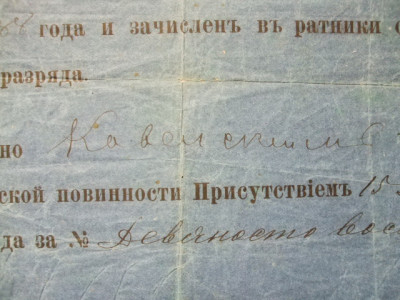 года и зачисленъ въ ратники
разряда.
но Ковенскимъ
ской повинности Присутствіемъ 15
да за № Девяносто вос